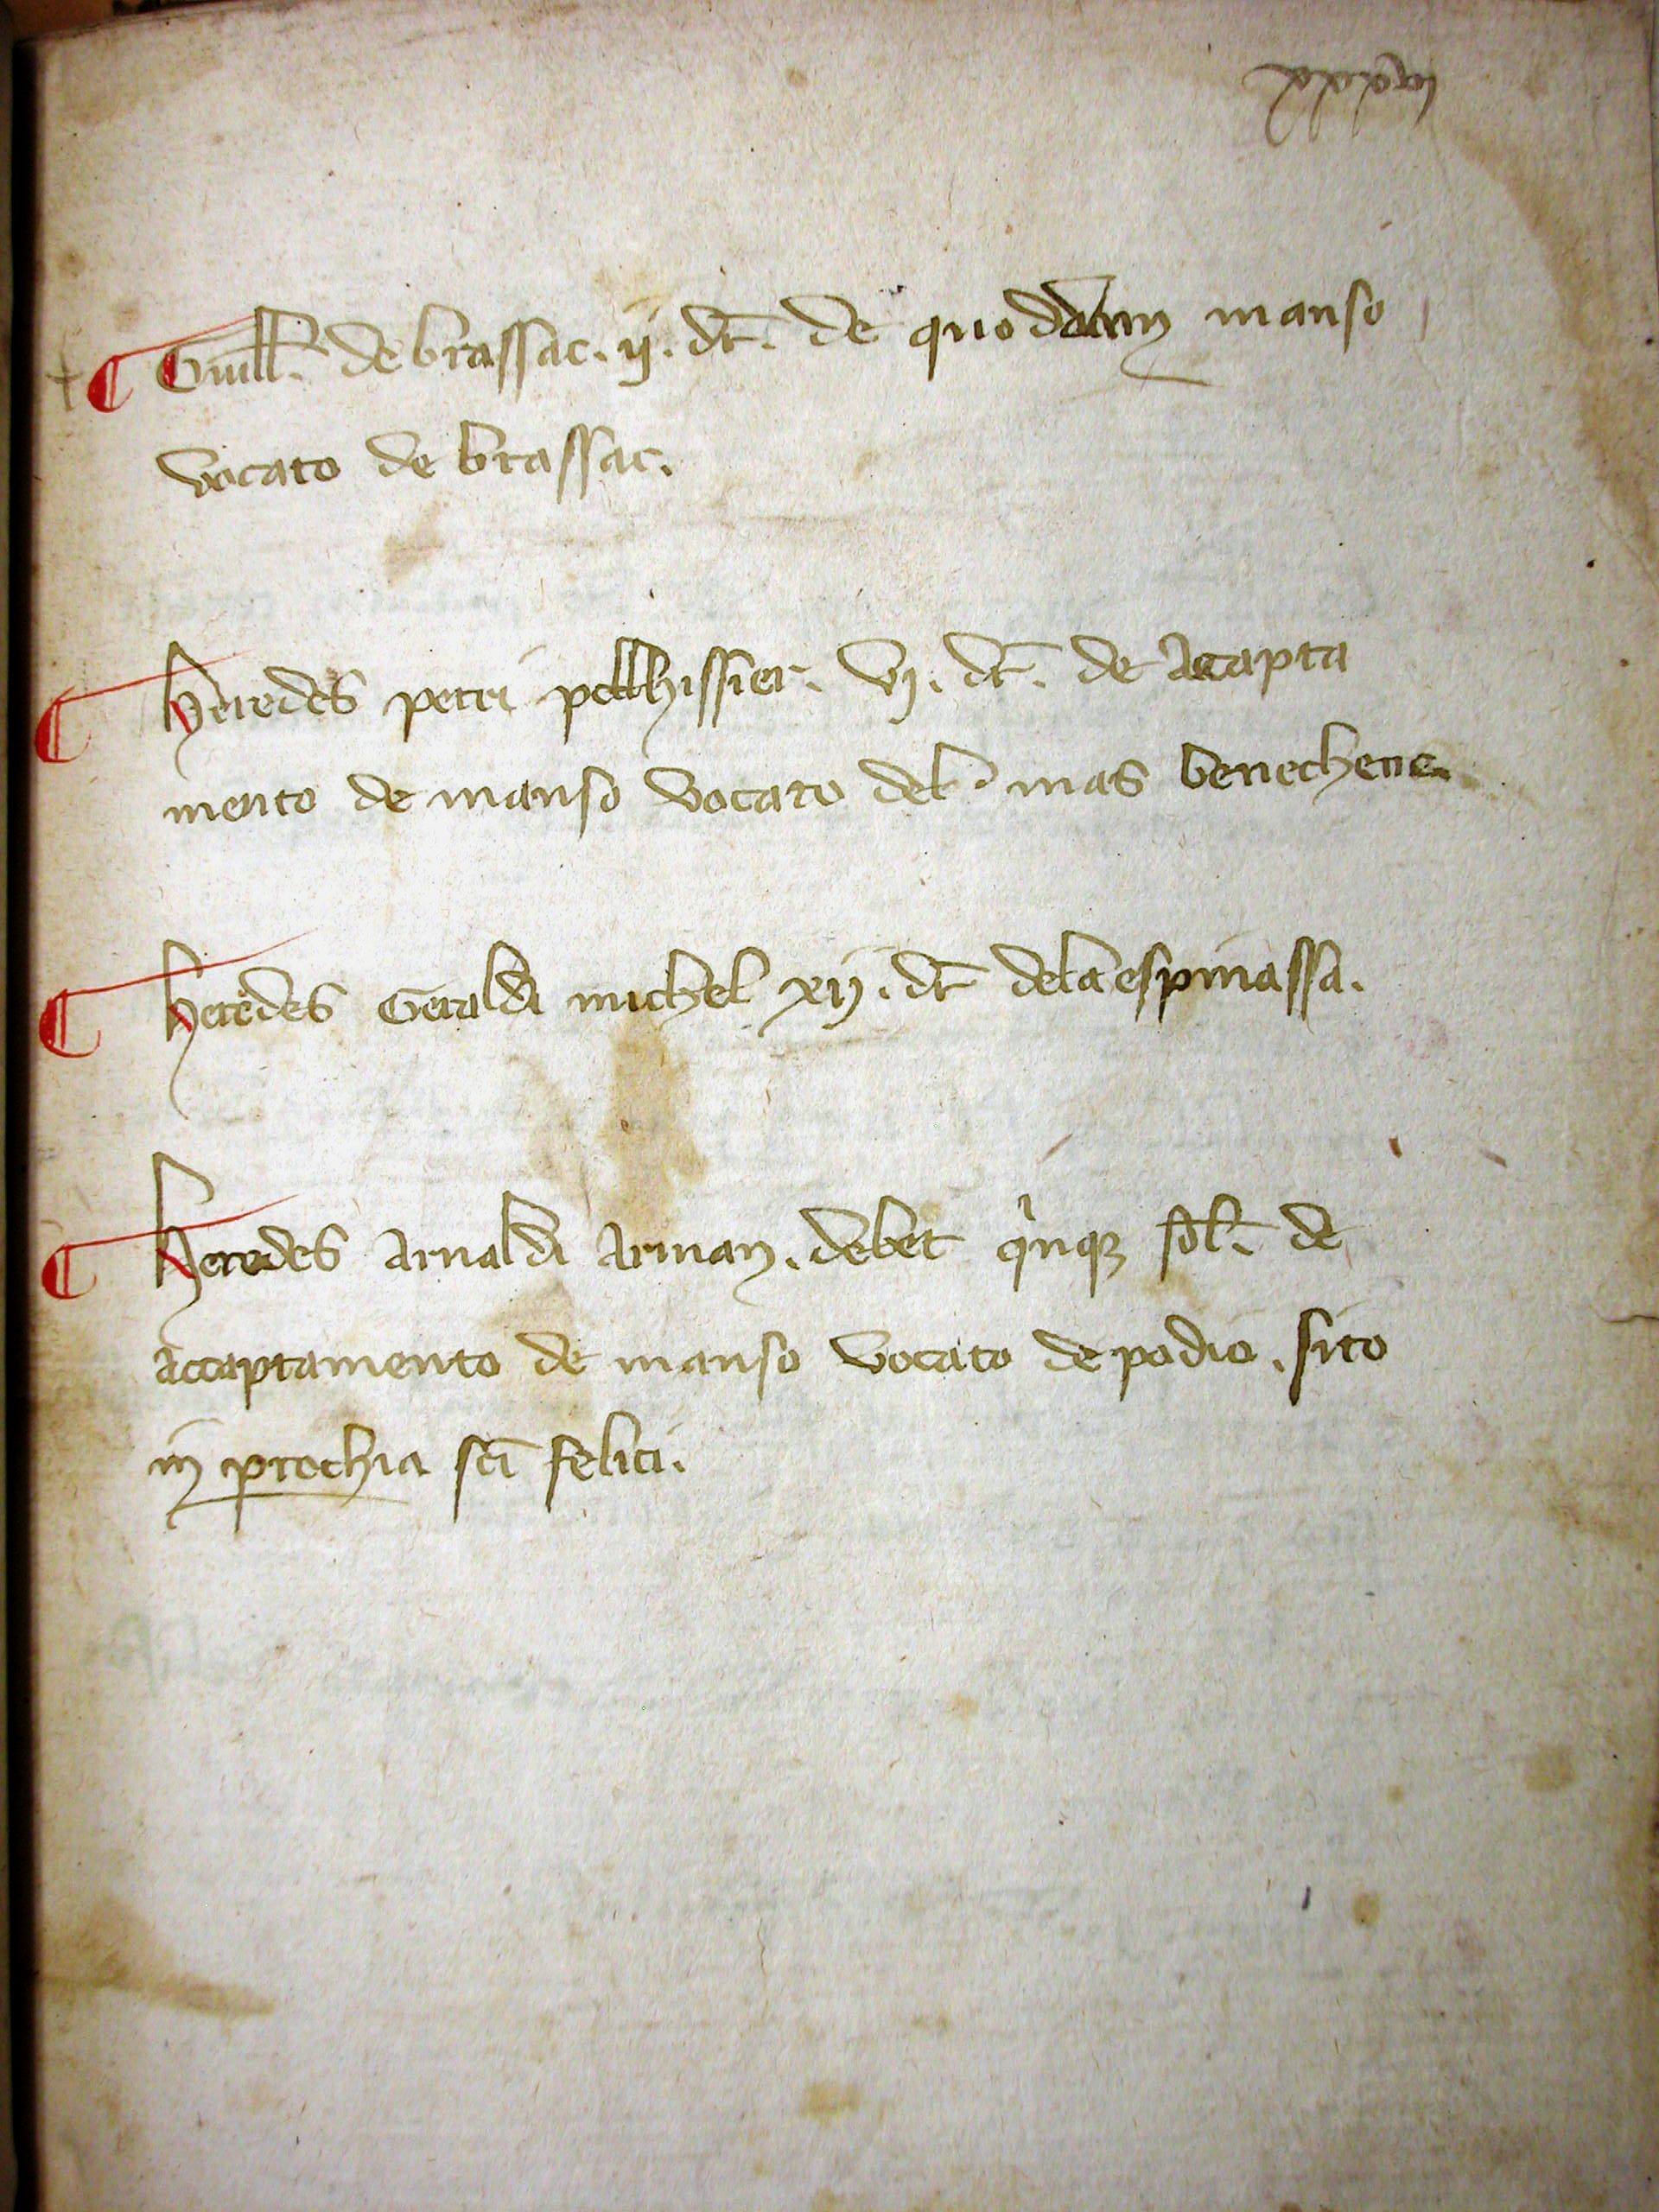 ¶ Guill. de brassac. ij. dr. de quoddam manso
vocato de brassac.
¶ Heredes petri pellhissier. vj. dr. de accapta
mento de manso vocato del mas benechene.
¶ heredes Geraldi michel xij. dr dela espinassa.
¶ heredes arnaldi arman. debet quinque sol. de
accaptamento de manso vocato de podio. sito
in prochia sci felici.